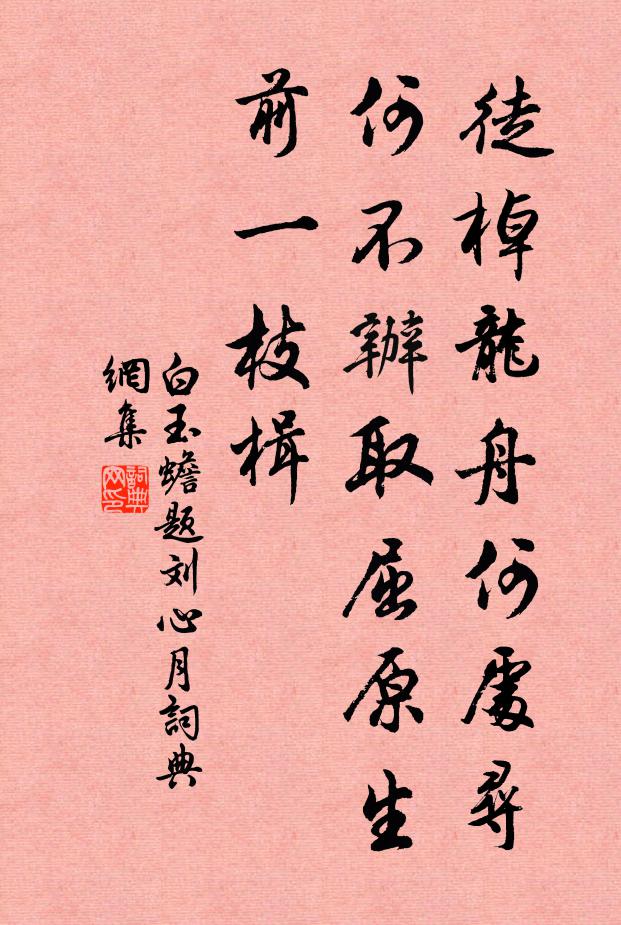 徒棹龍舟何處尋
何不辦取屈原生
前一枝楫
白玉蟾题刘心月詞典
網集
詞典
网印